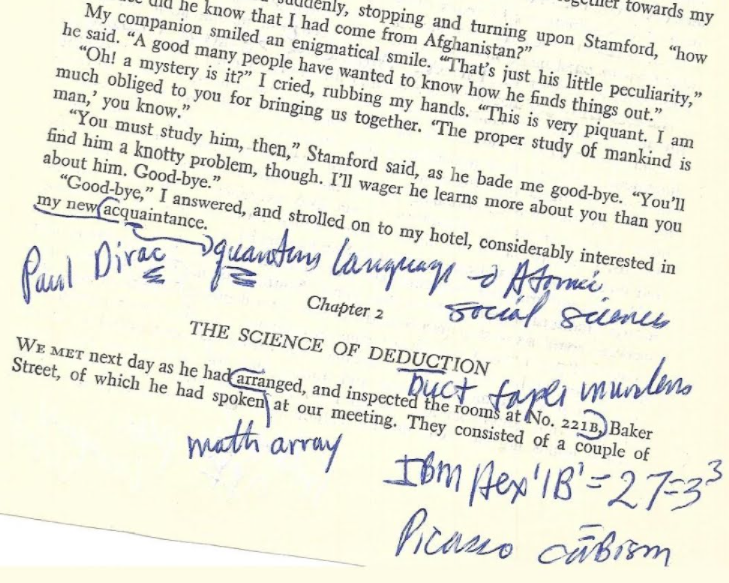 gether towards my
did he know that I had suddenly, stopping and turning upon Stamford, "how
did he know that I had come from Afghanistan?"
My companion smiled an enigmatical smile. "That's just his little peculiarity,"
he said. "A good many people have wanted to know how he finds things out."
"Oh! a mystery is it?" I cried, rubbing my hands. "This is very piquant. I am
much obliged to you for bringing us together. 'The proper study of mankind is
man,' you know."
"You must study him, then," Stamford said, as he bade me good-bye. "You'll
find him a knotty problem, though. I'll wager he learns more about you than you
about him. Good-bye."
"Good-bye," I answered, and strolled on to my hotel, considerably interested in
my new acquaintance.
Paul Dirac quantum language → Atomic
social sciences
Chapter 2
THE SCIENCE OF DEDUCTION
duct tape murders
WE MET next day as he had arranged, and inspected the rooms at No. 221B, Baker
Street, of which he had spoken at our meeting. They consisted of a couple of
math array
IBM Hex '1B' = 27 = 3³
Picasso cubism